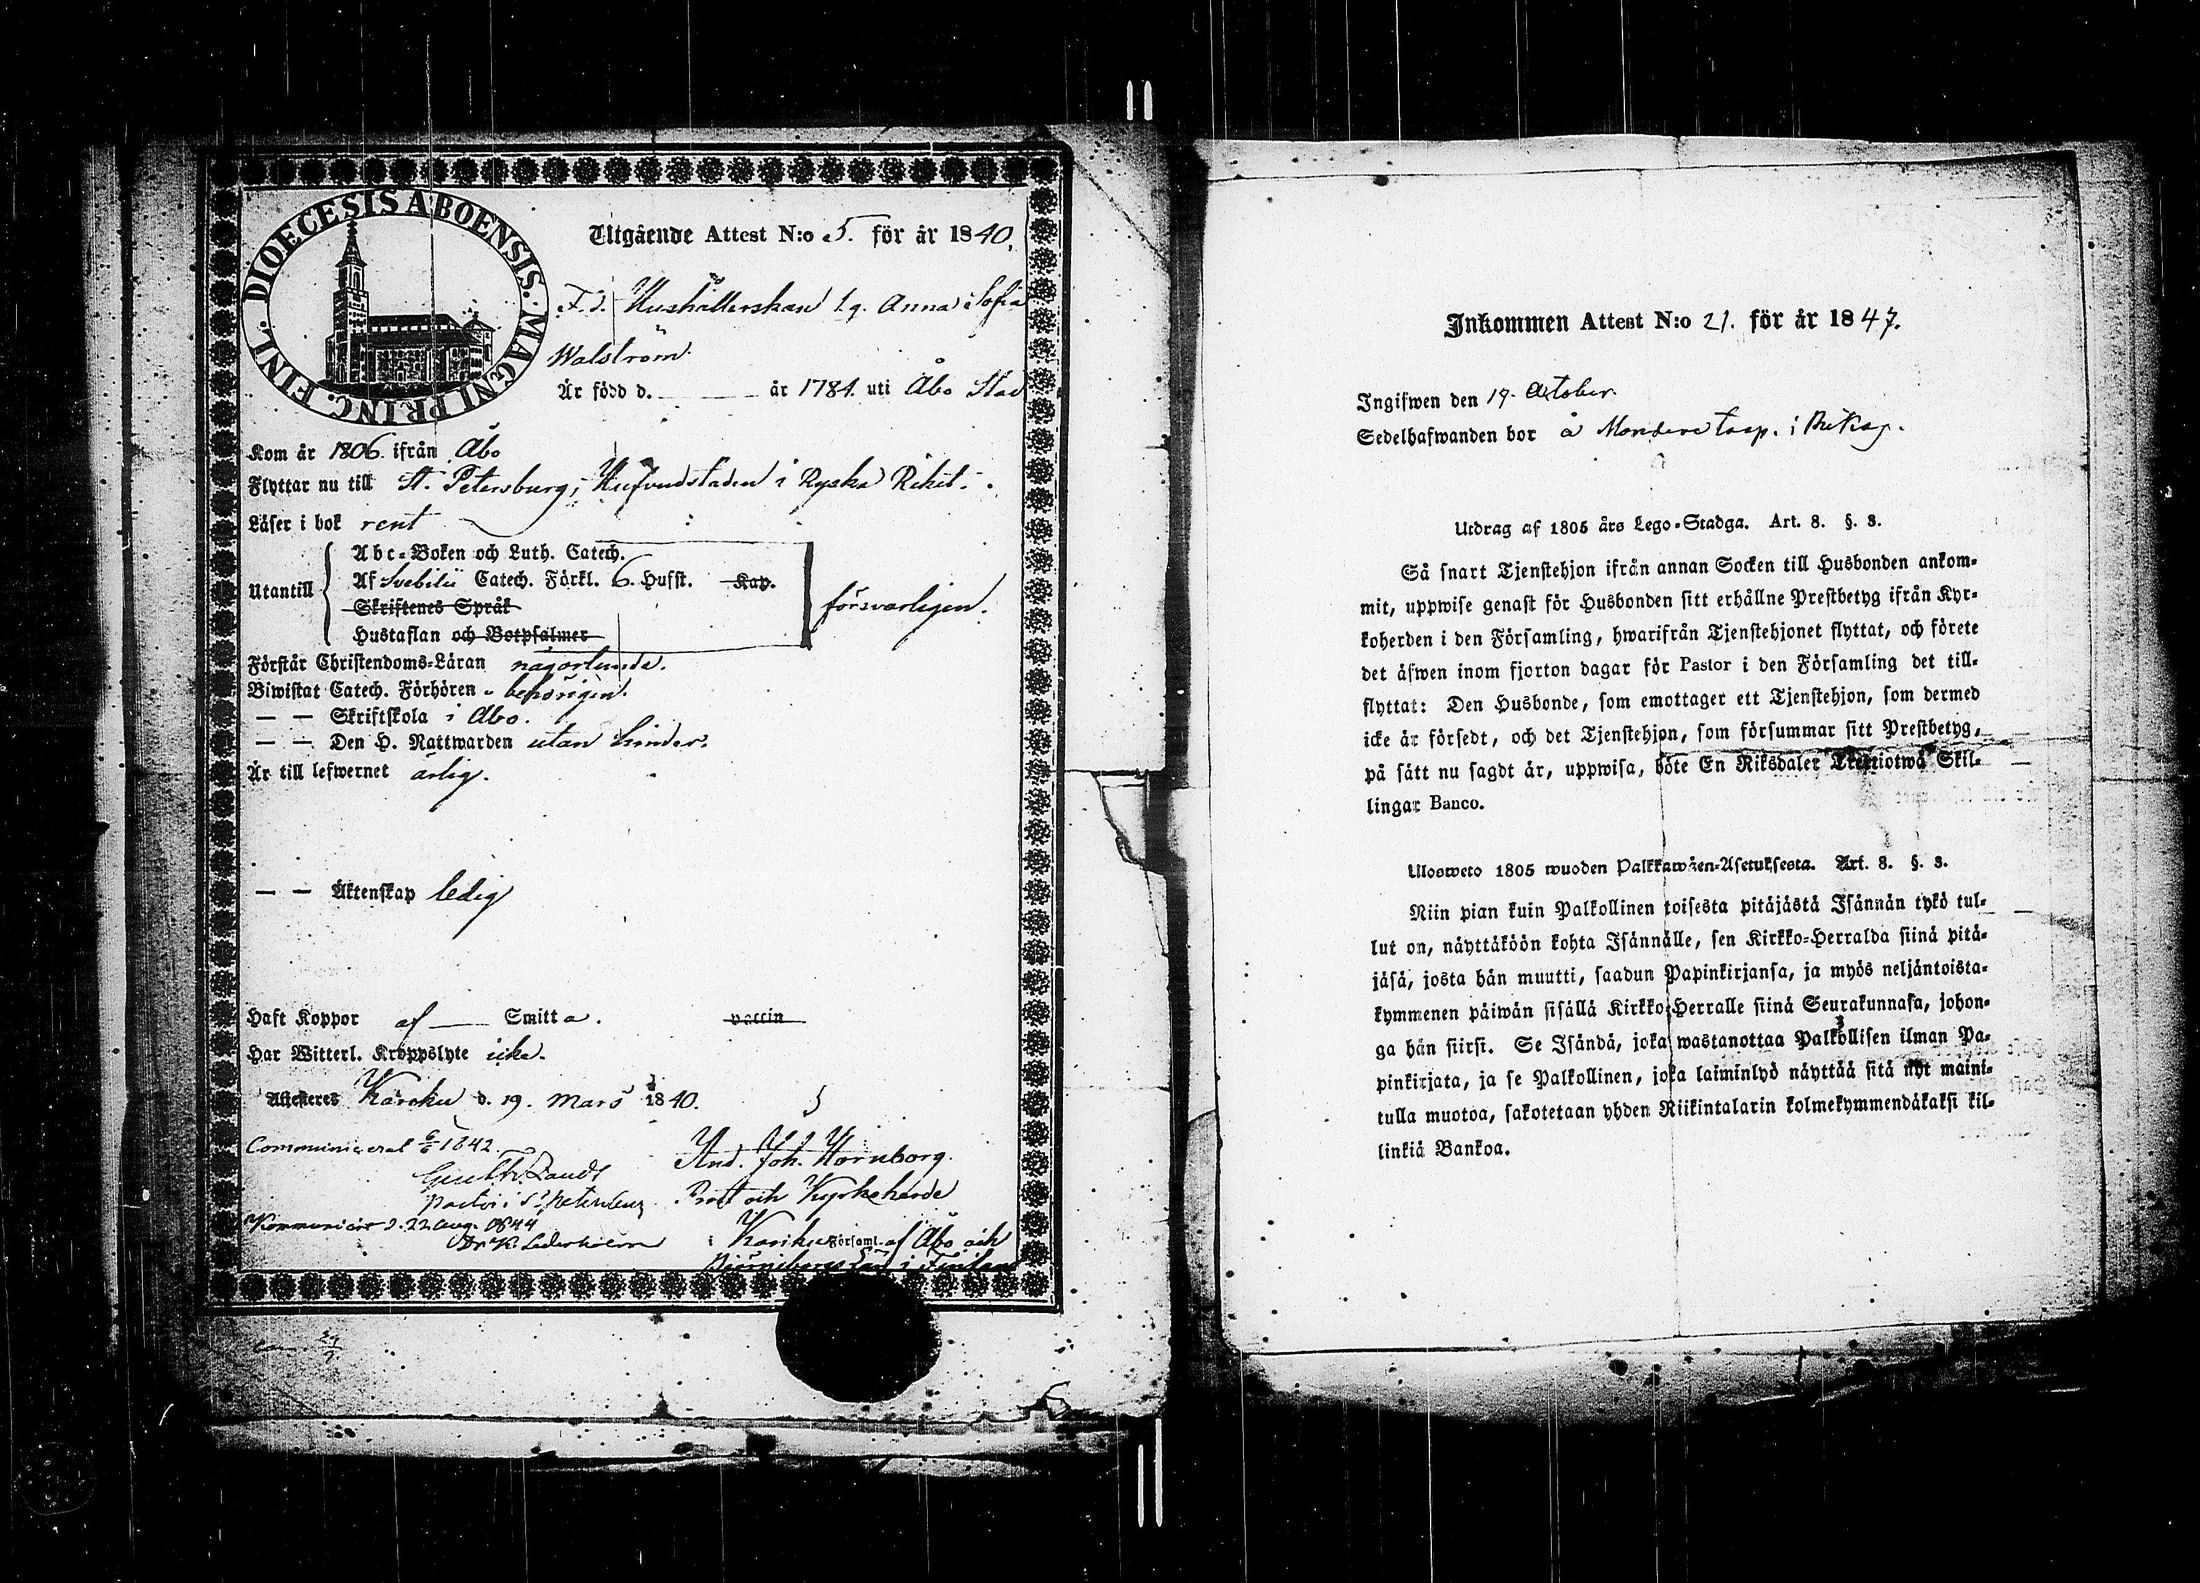 DIOECESIS ABOENSIS. MAGNI PRINC. FINL.
Utgående Attest N:o 5. för år 1840.
F. d. Hushållerskan Anna Sofia
Walström.
Är född d. år 1784. uti Åbo Stad
Kom år 1806. ifrån Åbo
Flyttar nu till St. Petersburg, Hufvudstaden i Ryska Riket.
Läser i bok rent
Utantill
Abc-Boken och Luth. Catech.
Af Svebilii Catech. Förkl. 6. Hufst. Kap.
Skriftenes Språk
Hustaflan och Botpsalmer
försvarligen.
Förstår Christendoms-Läran någorlunda.
Biwistat Catech. Förhören behörigen.
— — Skriftskola i Åbo.
— — Den H. Nattwarden utan hinder.
Är till lefwernet ärlig.
— — Äktenskap ledig
Haft Koppor af — Smitta. vaccin
Har Witterl. Kroppslyte icke.
Attesteres Karcku d. 19. Mars 1840.
Communicerat 6/6 1842.
And. Joh. Hornborg.
Pastor i St Petersburg
Prost och Kyrkoherde
Kommunicerat d. 22 Aug. 1844
K. Cederholm
i Karcku Församl. af Åbo och
Björneborgs Län i Finland
Inkommen Attest N:o 21. för år 1847.
Ingifwen den 19. October.
Sedelhafwanden bor å torp. i
Utdrag af 1805 års Lego-Stadga. Art. 8. §. 3.
Så snart Tjenstehjon ifrån annan Socken till Husbonden ankom-
mit, uppwise genast för Husbonden sitt erhållne Prestbetyg ifrån Kyr-
koherden i den Församling, hwarifrån Tjenstehjonet flyttat, och förete
det äfwen inom fjorton dagar för Pastor i den Församling det till-
flyttat: Den Husbonde, som emottager ett Tjenstehjon, som dermed
icke är försedt, och det Tjenstehjon, som försummar sitt Prestbetyg,
på sätt nu sagdt är, uppwisa, böte En Riksdaler Trettiotwå Skil-
lingar Banco.
Ulosweto 1805 wuoden Palkkawäen-Asetuksesta. Art. 8. §. 3.
Niin pian kuin Palkollinen toisesta pitäjästä Isännän tykö tul-
lut on, näyttäköön kohta Isännälle, sen Kirkko-Herralda siinä pitä-
jäsä, josta hän muutti, saadun Papinkirjansa, ja myös neljäntoista-
kymmenen päiwän sisällä Kirkko-Herralle siinä Seurakunnasa, johon-
ga hän siirsi. Se Isändä, joka wastanottaa Palkollisen ilman Pa-
pinkirjata, ja se Palkollinen, joka laiminlyö näyttää sitä nyt maini-
tulla muotoa, sakotetaan yhden Riikintalarin kolmekymmendäkaksi kil-
linkiä Bankoa.